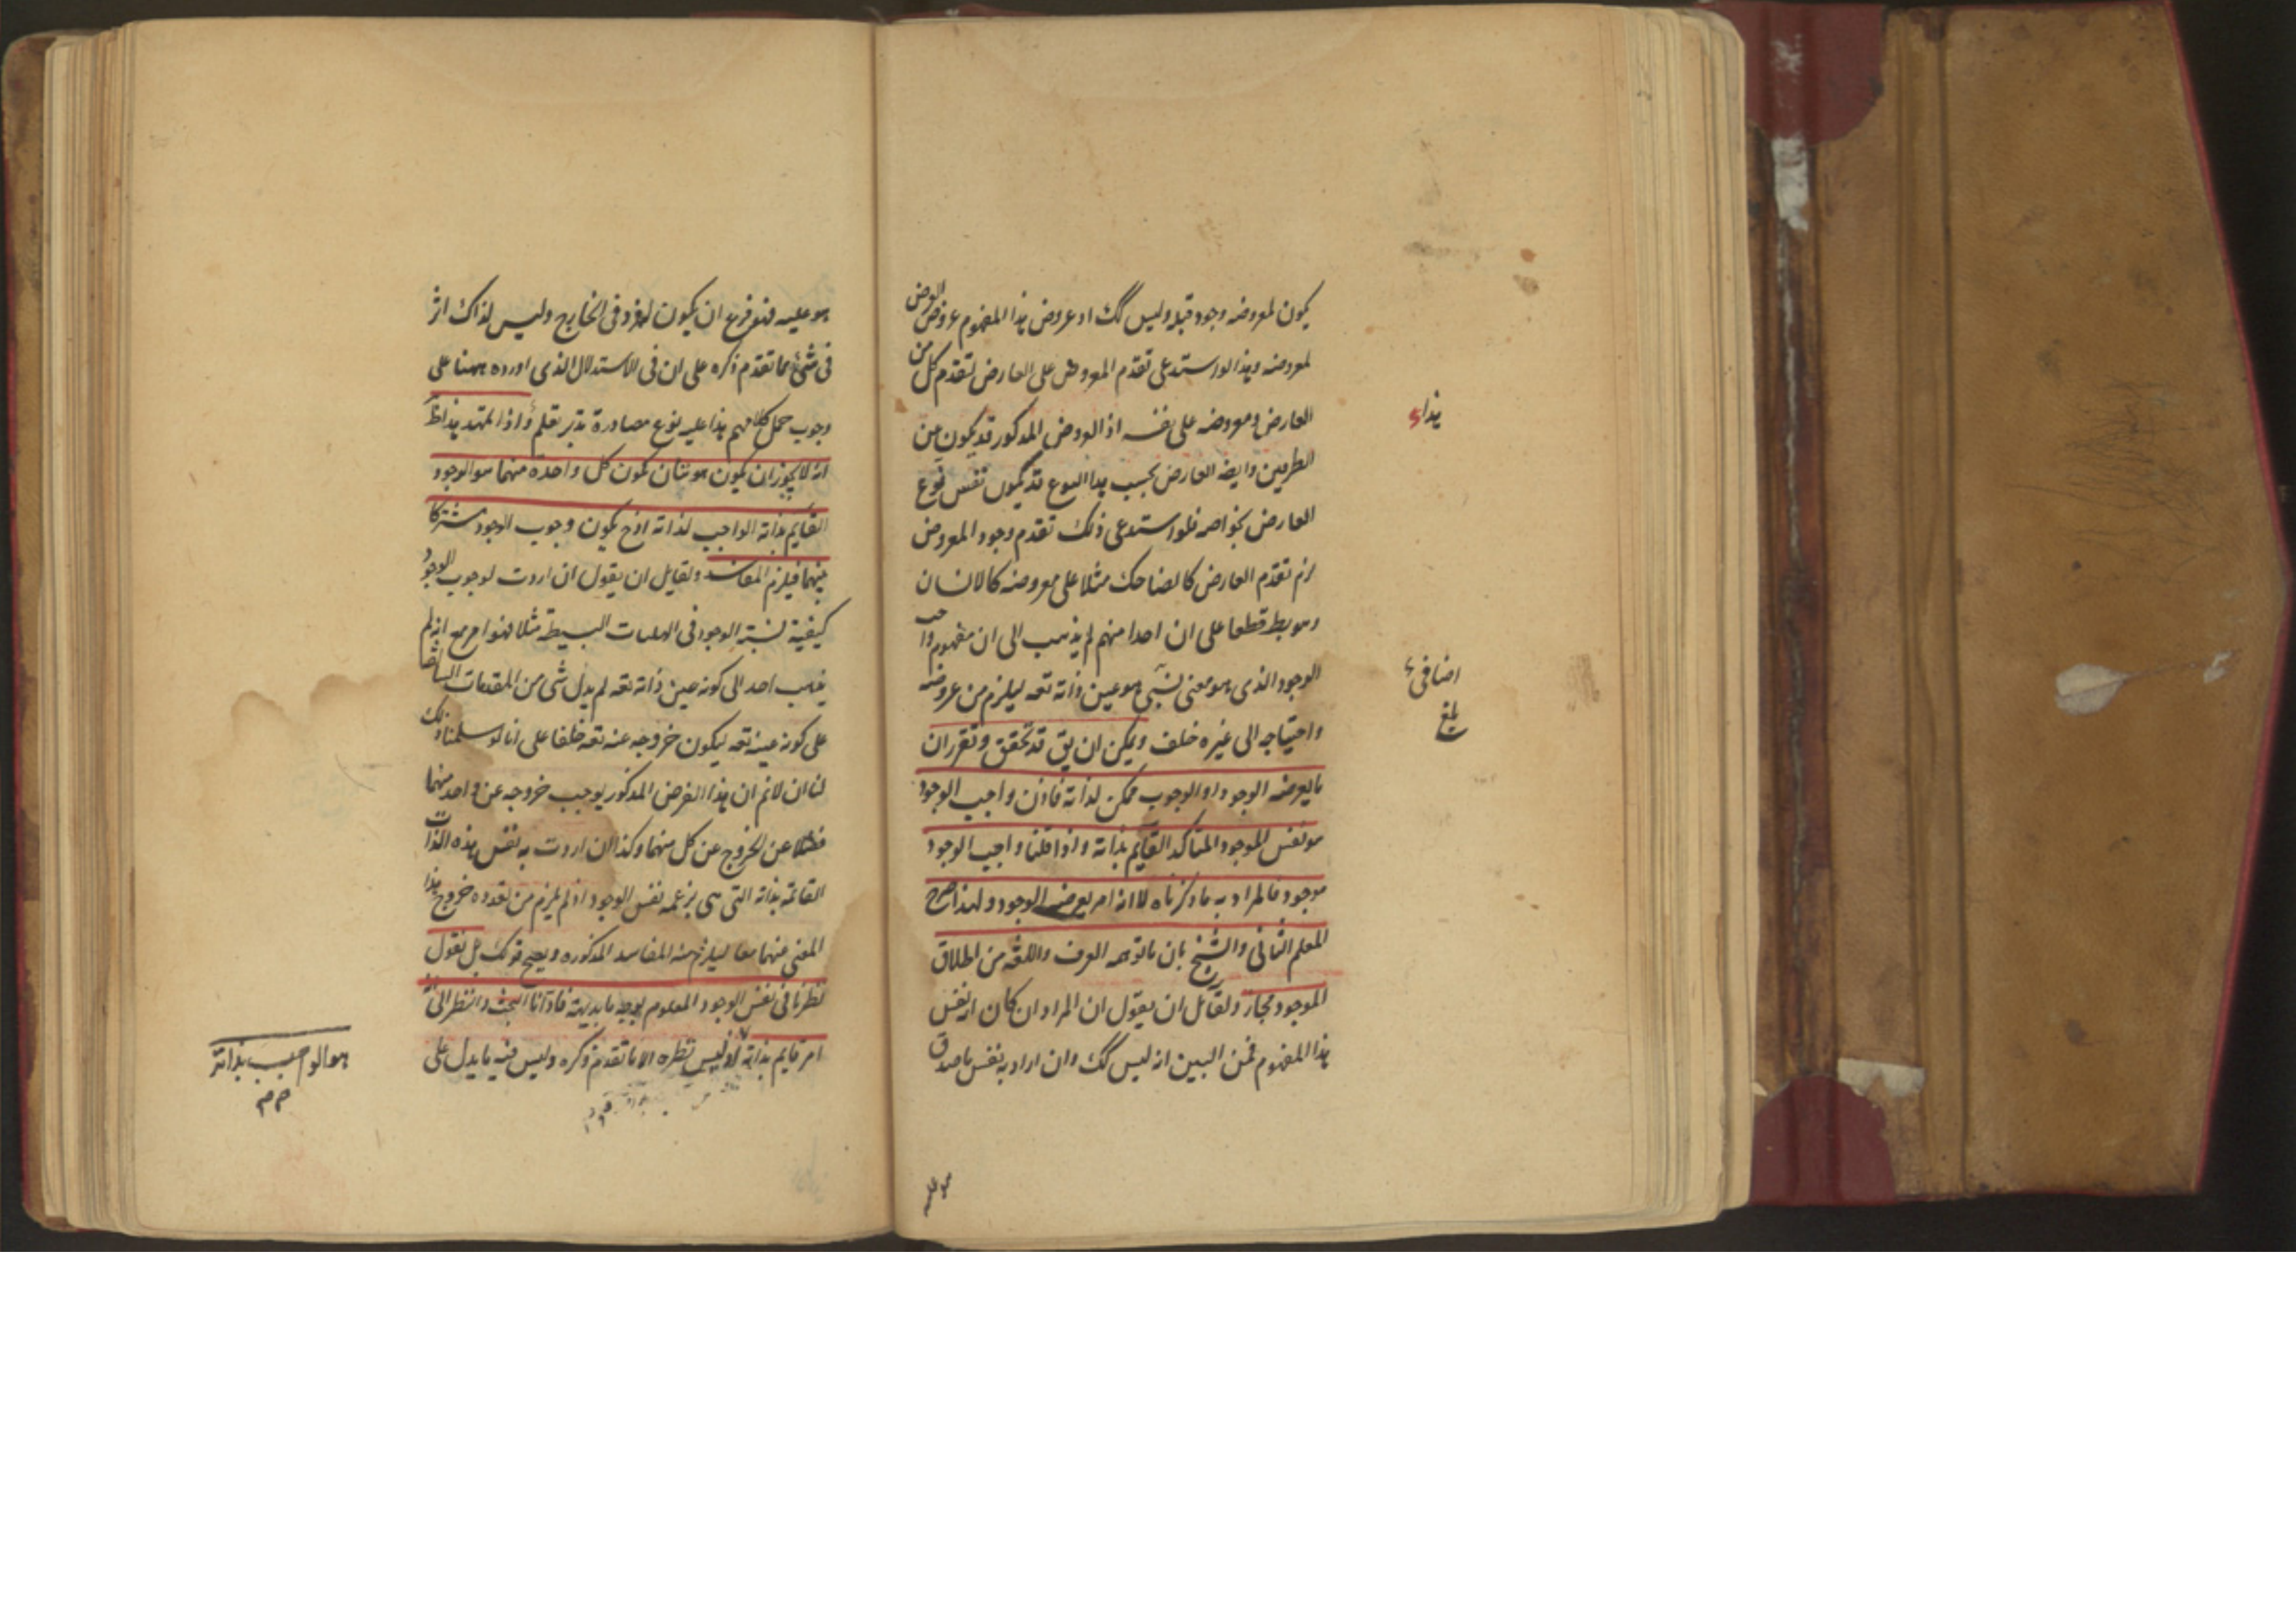 يكون لمعروضه وجود قبله وليس كك اذ عروض هذا المفهوم عروض العروض
لمعروضه وهذا لو استدعى تقدم المعروض على العارض لتقدم كل من
العارض ومعروضه على نفسه اذ العروض المذكور قد يكون من
الطرفين وايضا العارض بحسب هذا النوع قد يكون نفس نوع
العارض بخواصه فلو استدعى ذلك تقدم وجود المعروض
لزم تقدم العارض كالضاحك مثلا على معروضه كالانسان
وهو بط قطعا على ان احدا منهم لم يذهب الى ان مفهوم واجب
الوجود الذى هو معنى نسبى هو عين ذاته تعه ليلزم من عروضه
واحتياجه الى غيره خلف ويمكن ان يق قد تحقق وتقرر ان
ما يعرضه الوجود او الوجوب ممكن لذاته فاذن واجب الوجود
هو نفس الموجود المتاكد القايم بذاته واذا قلنا واجب الوجود
موجود فالمراد به ما ذكرناه لا انه امر يعرضه الوجود ولهذا صرح
المعلم الثانى والشيخ بان ما توهمه العرف واللغة من اطلاق
الموجود مجاز ولقائل ان يقول ان المراد ان كان انه نفس
هذا المفهوم فمن البين انه ليس كك وان اراد به نفس ما صدق
هو عليه
هذا
اضافى
بلغ
هو عليه فهو فرع ان يكون له فرد فى الخارج وليس لذاك اثر
فى شئ مما تقدم ذكره على ان فى الاستدلال الذى اورده ههنا على
وجوب حمل كلامهم هذا عليه نوع مصادرة تدبر تعلم واذا تمهد هذا ظ
انه لا يجوز ان يكون هويتان يكون كل واحدة منهما هو الوجود
القايم بذاته الواجب لذاته اذ ح يكون وجوب الوجود مشتركا
بينهما فيلزم المفاسد ولقايل ان يقول ان اردت لوجوب الوجود
كيفية نسبة الوجود فى الهليات البسيطة مثلا فهو امر مع انه لم
يذهب احد الى كونه عين ذاته تعه لم يدل شى من المقدمات
على كونه عينه تعه ليكون خروجه عنه تعه خلفا على انا لو سلمنا ذلك
لنا ان لا نم ان هذا الفرض المذكور يوجب خروجه عن واحد منهما
فضلا عن الخروج عن كل منهما وكذا ان اردت به نفس هذه الذات
القائمة بذاته التى هى بزعمه نفس الوجود اذ لم يلزم من تعدده خروج هذا
المعنى منهما معا ليلزم منه المفاسد المذكوره ويصح قولك بل نقول
نظرنا فى نفس الوجود المعلوم بوجه ما بديهة فادانا البحث والنظر الى انه
امر قايم بذاته اذ ليس نظره الا ما تقدم ذكره وليس فيه ما يدل على
هو الواجب بذاته